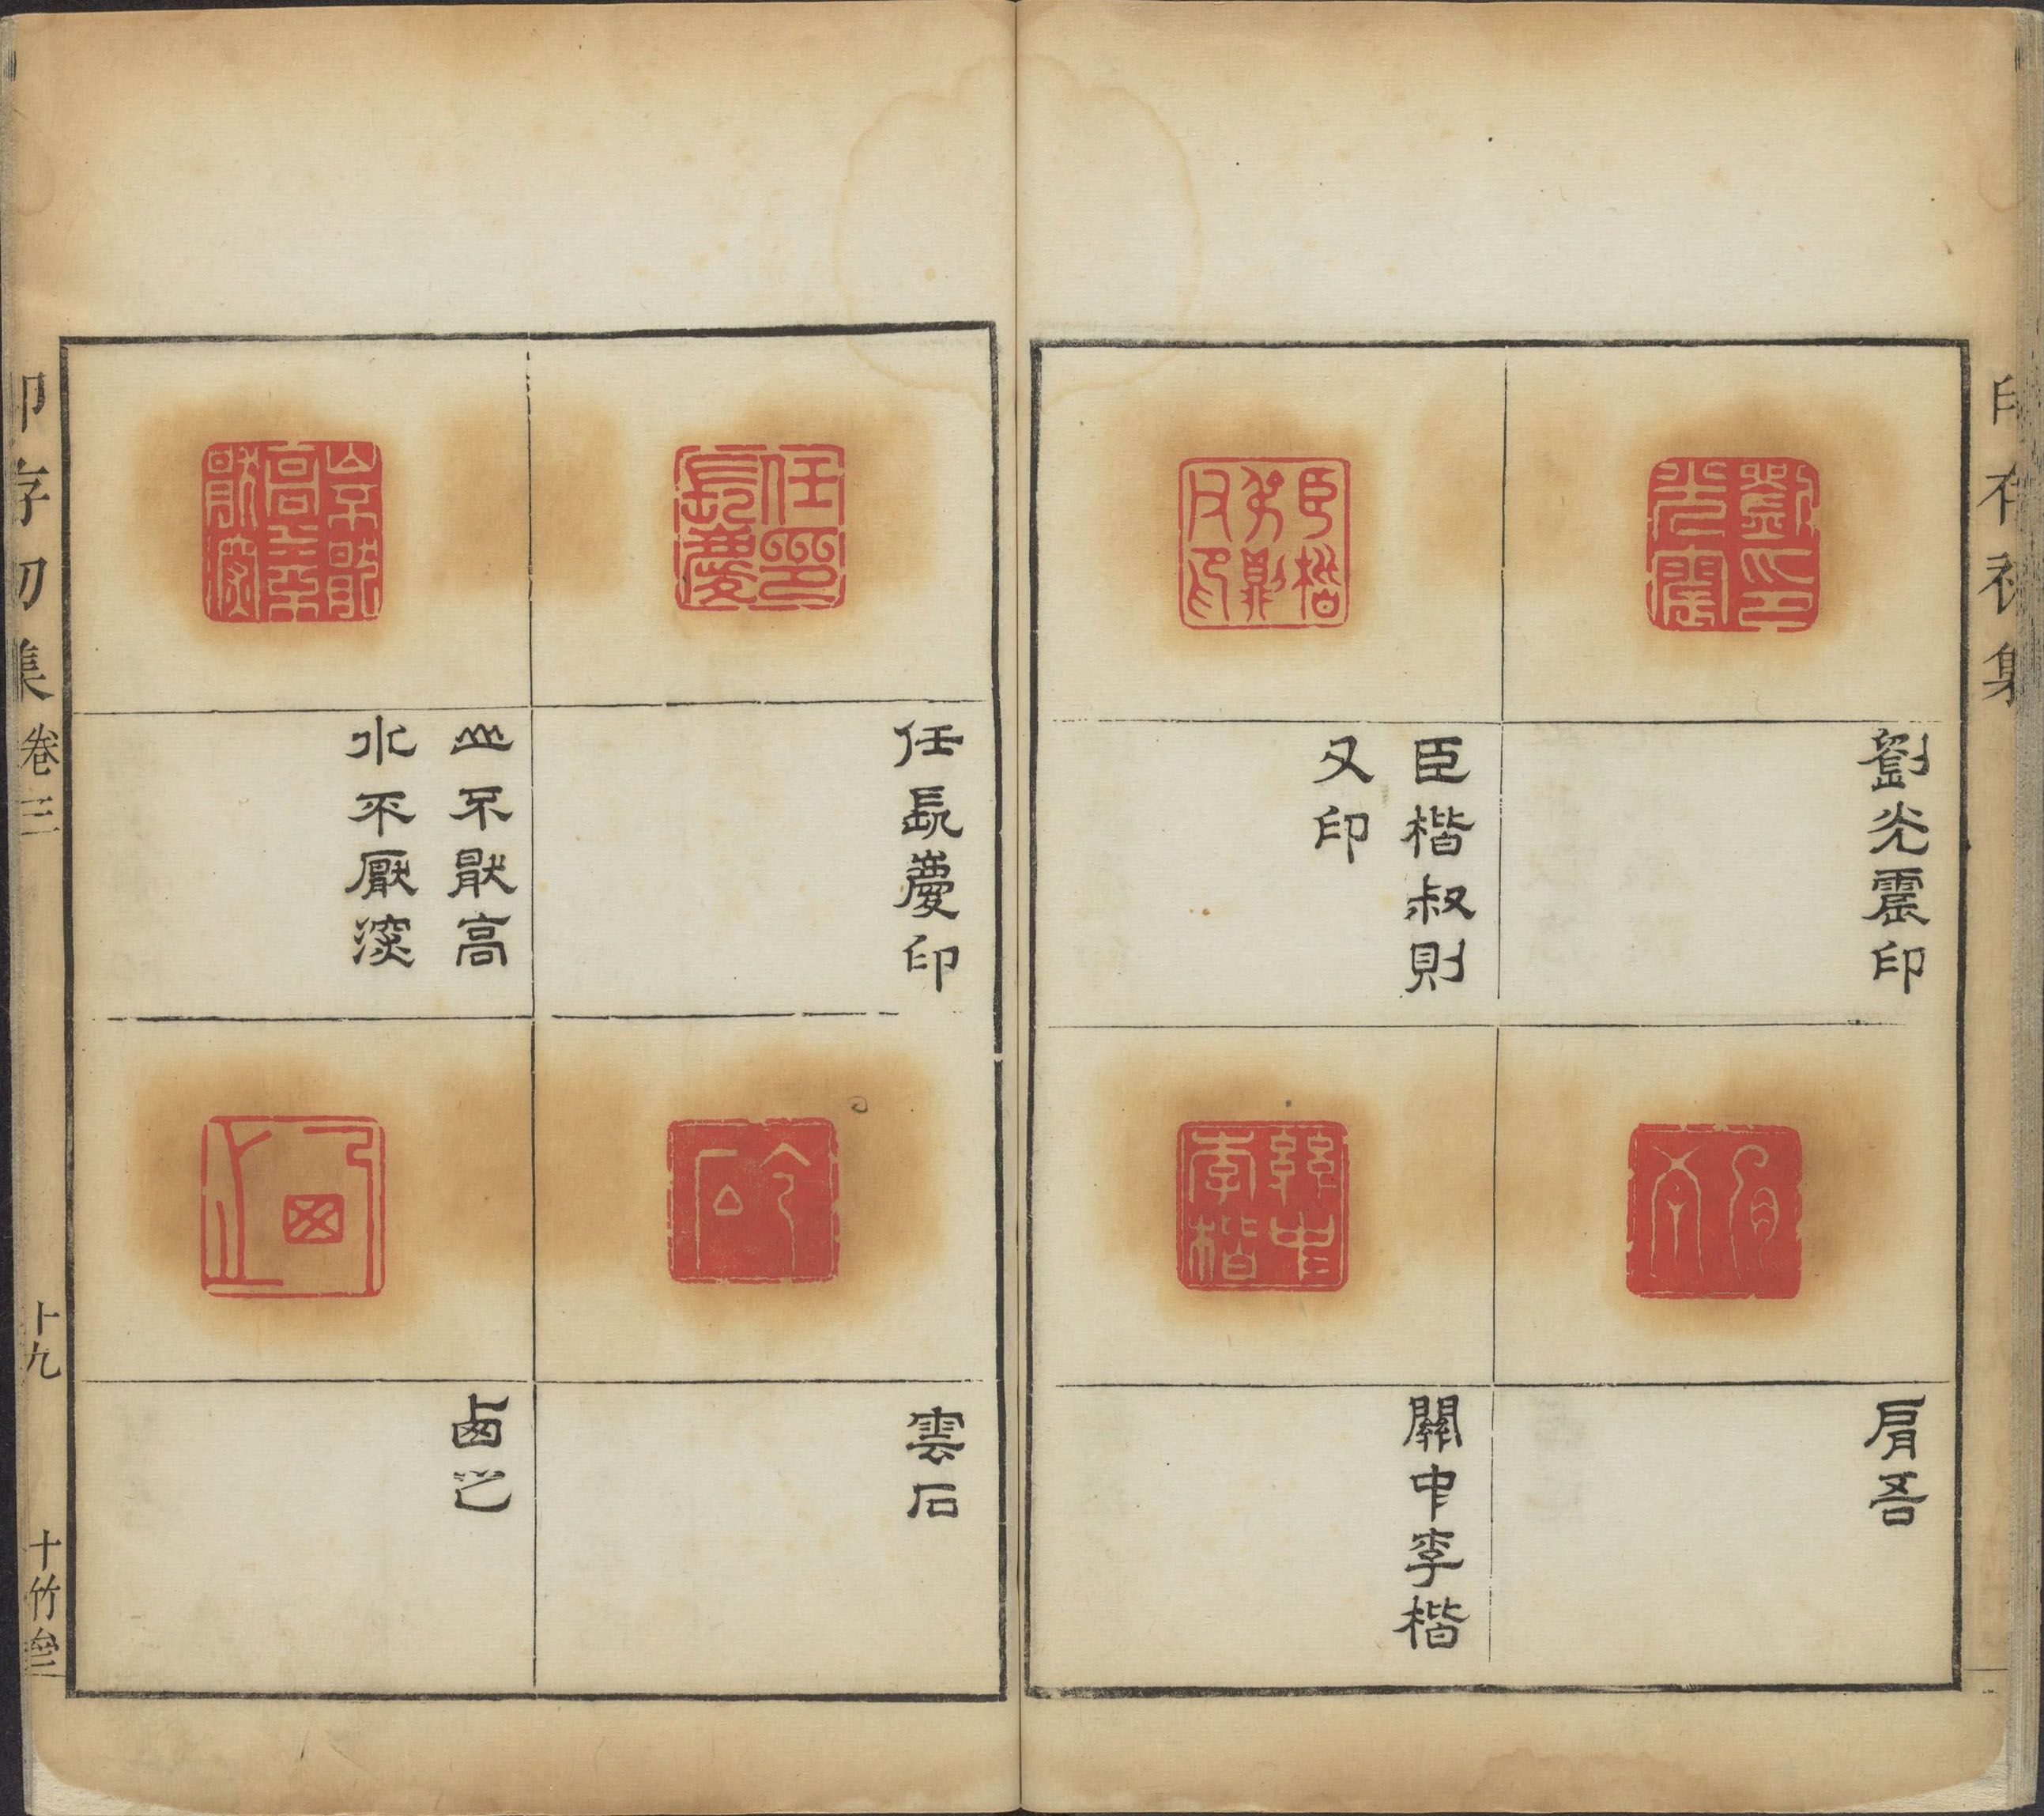 印存初集
劉光震印
臣楷叔則
又印
肩吾
關中李楷
任長慶印
山不厭高
水不厭深
雲石
印存初集 卷三 十九 十竹斋